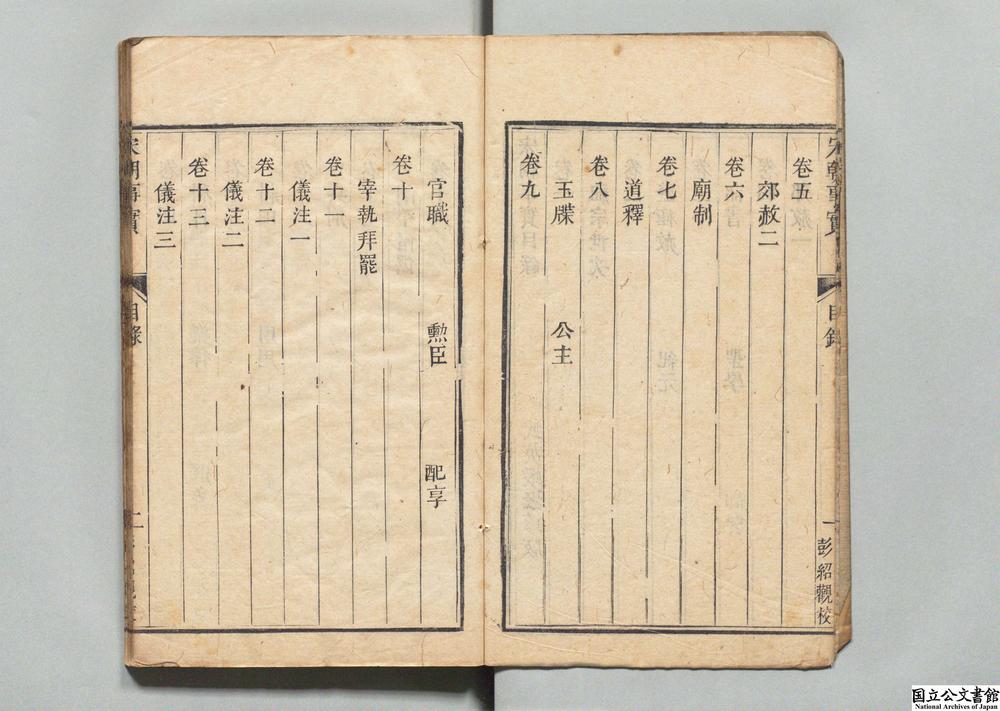 宋朝事實
目錄
一
彭紹觀校
卷五
郊赦二
卷六
廟制
卷七
道釋
卷八
玉牒 公主
卷九
官職 勲臣 配享
卷十
宰執拜罷
卷十一
儀注一
卷十二
儀注二
卷十三
儀注三
宋朝事實
目錄
国立公文書館
National Archives of Japan